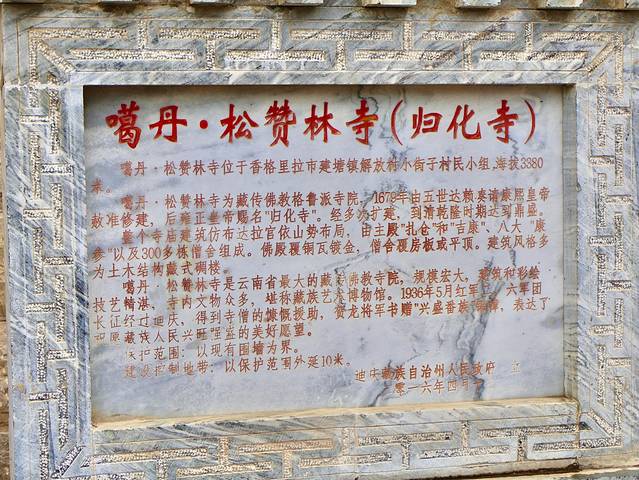 噶丹·松赞林寺(归化寺)
噶丹·松赞林寺位于香格里拉市建塘镇解放村小街子村民小组,海拔3380
米。
噶丹·松赞林寺为藏传佛教格鲁派寺院,1679年由五世达赖奏请康熙皇帝
敕准修建,后雍正皇帝赐名"归化寺"。经多次扩建,到清乾隆时期达到甫盛。
整个寺庙建筑仿布达拉宫依山势布局,由主殿"扎仓"和"吉康"、八大"康
参"以及300多栋僧舍组成。佛殿覆铜瓦镀金,僧舍覆房板或平顶。建筑风格多
为土木结构藏式碉楼。
噶丹·松赞林寺是云南省最大的藏传佛教寺院,规模宏大,建筑和彩绘
技艺精湛,寺内文物众多,堪称藏族艺术博物馆。1936年5月红军二、六军团
长征经过迪庆,得到寺僧的慷慨援助,贺龙将军书赠"兴盛番族"锦幛,表达了
祝愿藏族人民兴旺强盛的美好愿望。
保护范围:以现有围墙为界。
建设控制地带:以保护范围外延10米。
迪庆藏族自治州人民政府 立
零一六年四月